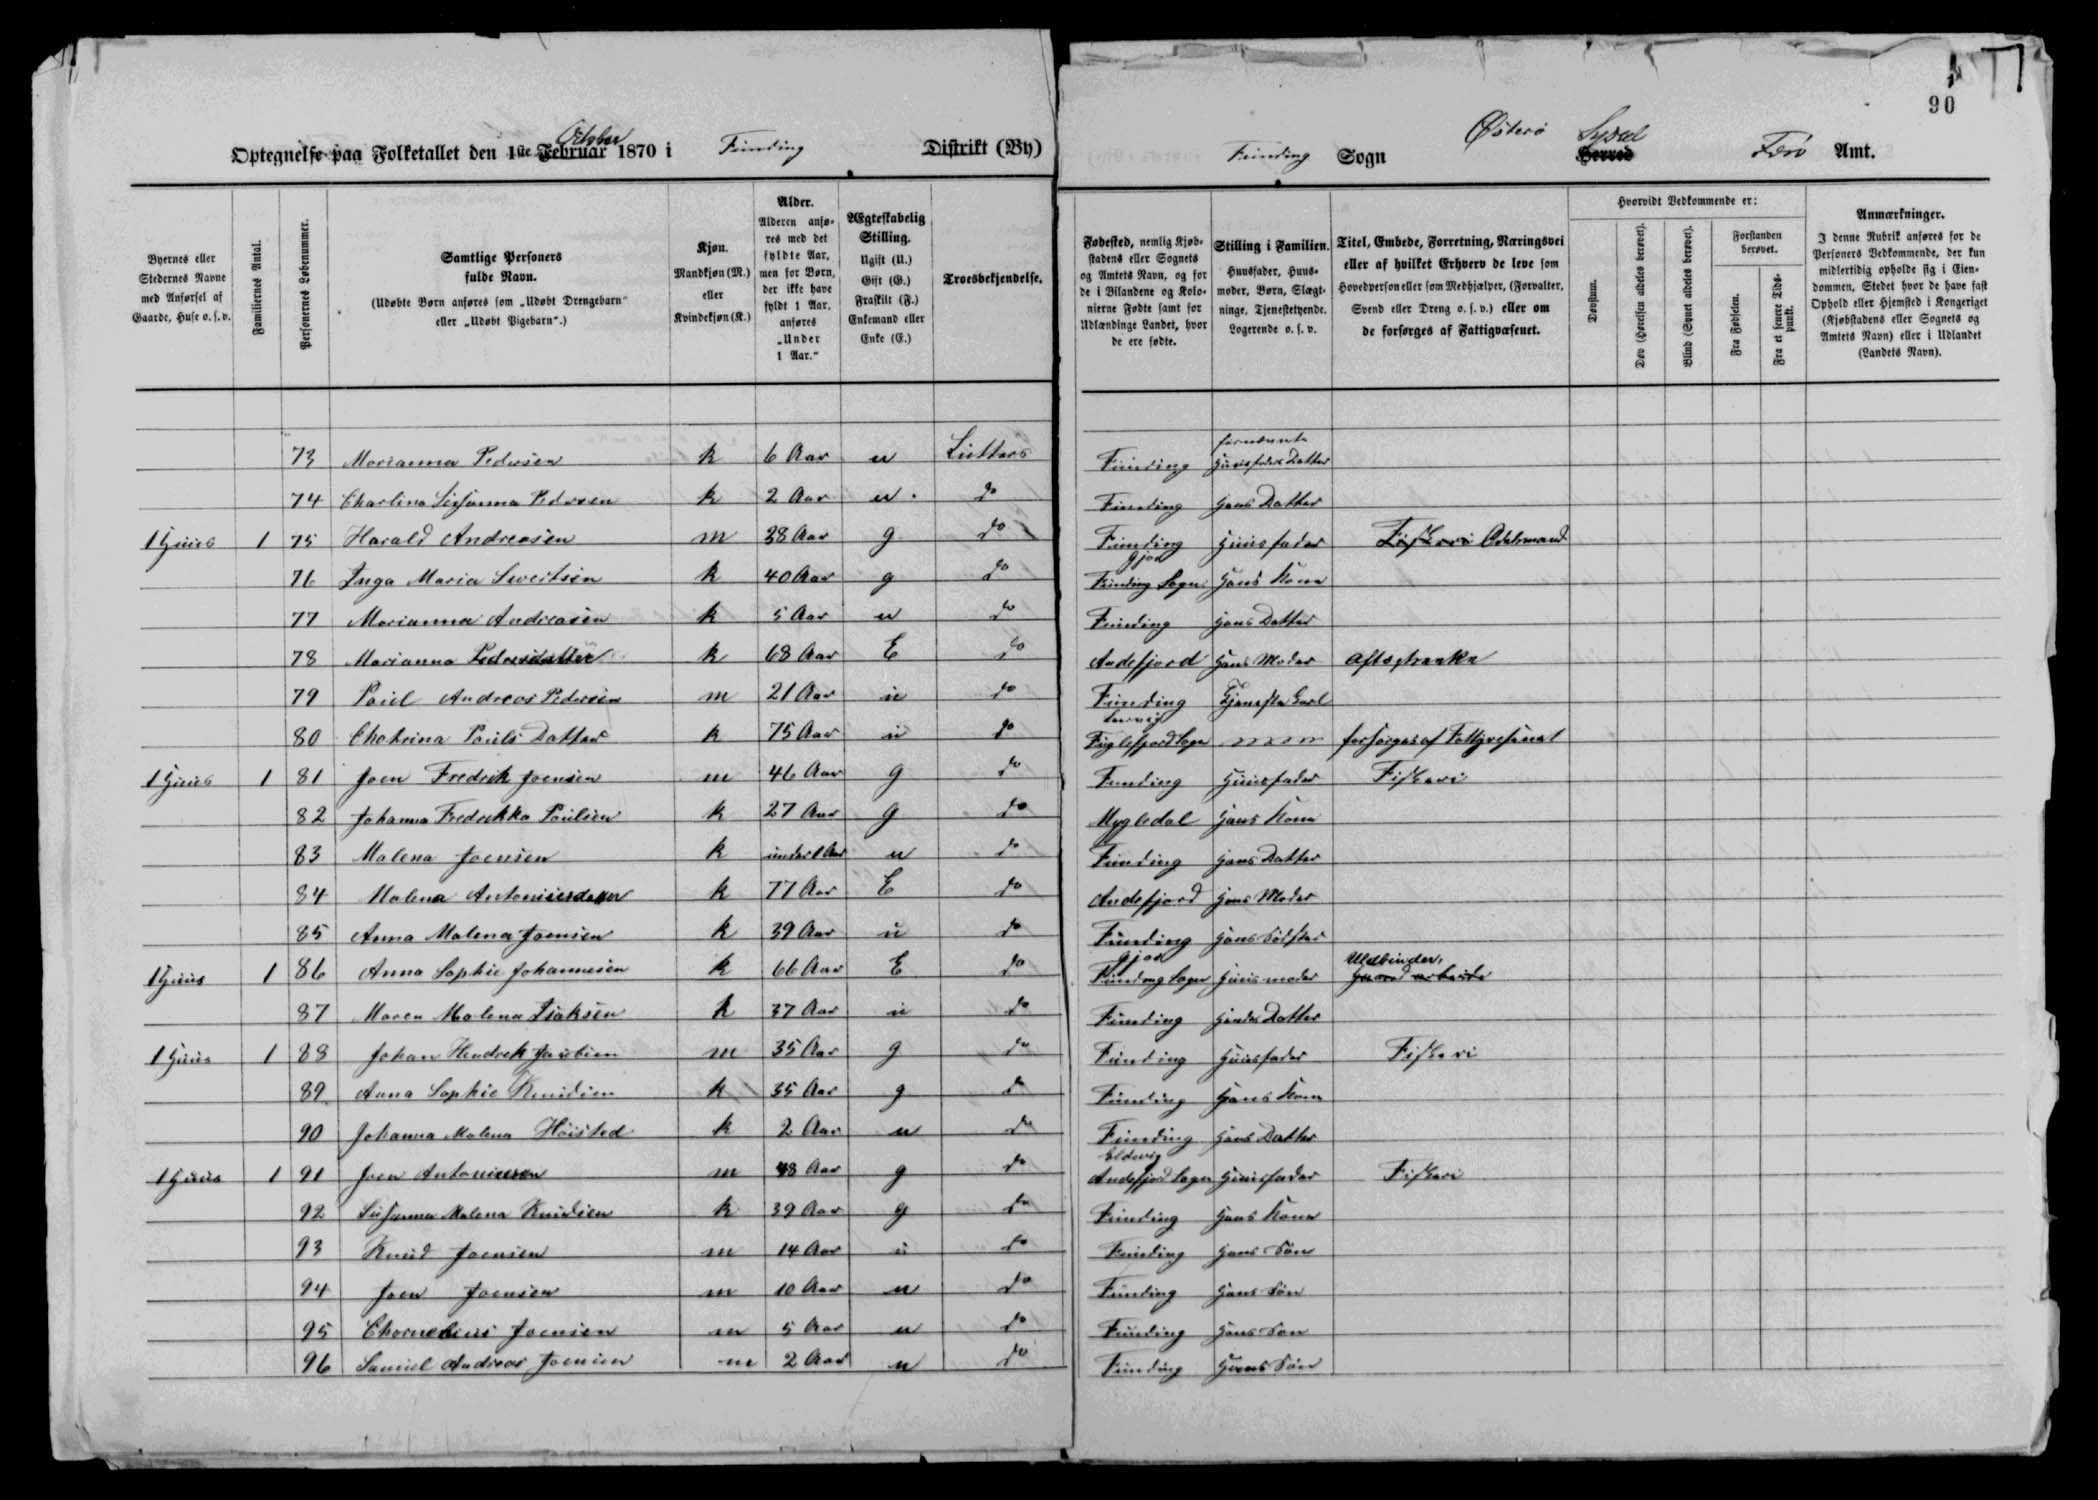 90
Optegnelse paa Folketallet den 1ste Februar October 1870 i Funding Distrikt (By)
Funding Sogn Østerø Herred Syssel Færø Amt.
Byernes eller Stedernes Navne med Anførsel af Gaarde, Huse o. s. v.
Familiernes Antal.
Personernes Løbenummer.
Samtlige Personers fulde Navn.
(Udøbte Børn anføres som „Udøbt Drengebarn“ eller „Udøbt Pigebarn“.)
Kjøn.
Mandkjøn (M.) eller Kvindekjøn (K.)
Alder.
Alderen anføres med det fyldte Aar, men for Børn, der ikke have fyldt 1 Aar, anføres „Under 1 Aar.“
Ægteskabelig Stilling.
Ugift (U.) Gift (G.) Fraskilt (F.) Enkemand eller Enke (E.)
Troesbekjendelse.
Fødested, nemlig Kjøbstadens eller Sognets og Amtets Navn, og for de i Bilandene og Kolonierne Fødte samt for Udlændinge Landet, hvor de ere fødte.
Stilling i Familien.
Huusfader, Huusmoder, Børn, Slægtninge, Tjenestetyende, Logerende o. s. v.
Titel, Embede, Forretning, Næringsvei eller af hvilket Erhverv de leve som Hovedperson eller som Medhjælper, (Forvalter, Svend eller Dreng o. s. v.) eller om de forsørges af Fattigvæsenet.
Hvorvidt Vedkommende er:
Døvstum.
Døv (Hørelsen aldeles berøvet).
Blind (Synet aldeles berøvet).
Forstanden berøvet.
Fra Fødselen.
Fra et senere Tidspunkt.
Anmærkninger.
I denne Rubrik anføres for de Personers Vedkommende, der kun midlertidig opholde sig i Eiendommen, Stedet hvor de have fast Ophold eller Hjemsted i Kongeriget (Kjøbstadens eller Sognets og Amtets Navn) eller i Udlandet (Landets Navn).
73 Marianna Pedersen k 6 Aar u Luthers Funding fornævnte Huusfaders Datter
74 Charlina Susanna Pedersen k 2 Aar u do Funding Hans Datter
1 Huus 1 75 Harald Andreasen m 38 Aar g do Funding Huusfader Fiskeri Odelsmand
76 Inga Maria Sivertsen k 40 Aar g do Gjov Funding Sogn Hans Kone
77 Marianna Andreasen k 5 Aar u do Funding Hans Datter
78 Marianna Pedersdatter k 68 Aar E do Andefjord Hans Moder
79 Poul Andreas Pedersen m 21 Aar u do Funding Tjeneste Karl
80 Chatrina Pouls Datter k 75 Aar u do Fuglefjord Sogn forsørges af Fattigvesenet
1 Huus 1 81 Joen Fredrik Joensen m 46 Aar g do Funding Huusfader Fiskeri
82 Johanna Fredrikka Poulsen k 27 Aar g do Mygledal Hans Kone
83 Malena Joensen k under 1 Aar u do Funding Hans Datter
84 Malena Antoniusdatter k 77 Aar E do Andefjord Hans Moder
85 Anna Malena Joensen k 39 Aar u do Funding Hans Søster
1 Huus 1 86 Anna Sophie Johannesen k 66 Aar E do Gjov Funding Sogn Huusmoder Uldbinder,
87 Maren Malena Isaksen k 37 Aar u do Funding Hendes Datter
1 Huus 1 88 Johan Hendrik Jacobsen m 35 Aar g do Funding Huusfader Fiskeri
89 Anna Sophie Knudsen k 35 Aar g do Funding Hans Kone
90 Johanna Malena Høisted k 2 Aar u do Funding Hans Datter
1 Huus 1 91 Joen Antoniusen m 48 Aar g do Eldevig Andefjord Sogn Huusfader Fiskeri
92 Susanna Malena Knudsen k 39 Aar g do Funding Hans Kone
93 Knud Joensen m 14 Aar u do Funding Hans Søn
94 Joen Joensen m 10 Aar u do Funding Hans Søn
95 Chornelius Joensen m 5 Aar u do Funding Hans Søn
96 Samuel Andreas Joensen m 2 Aar u do Funding Hans Søn